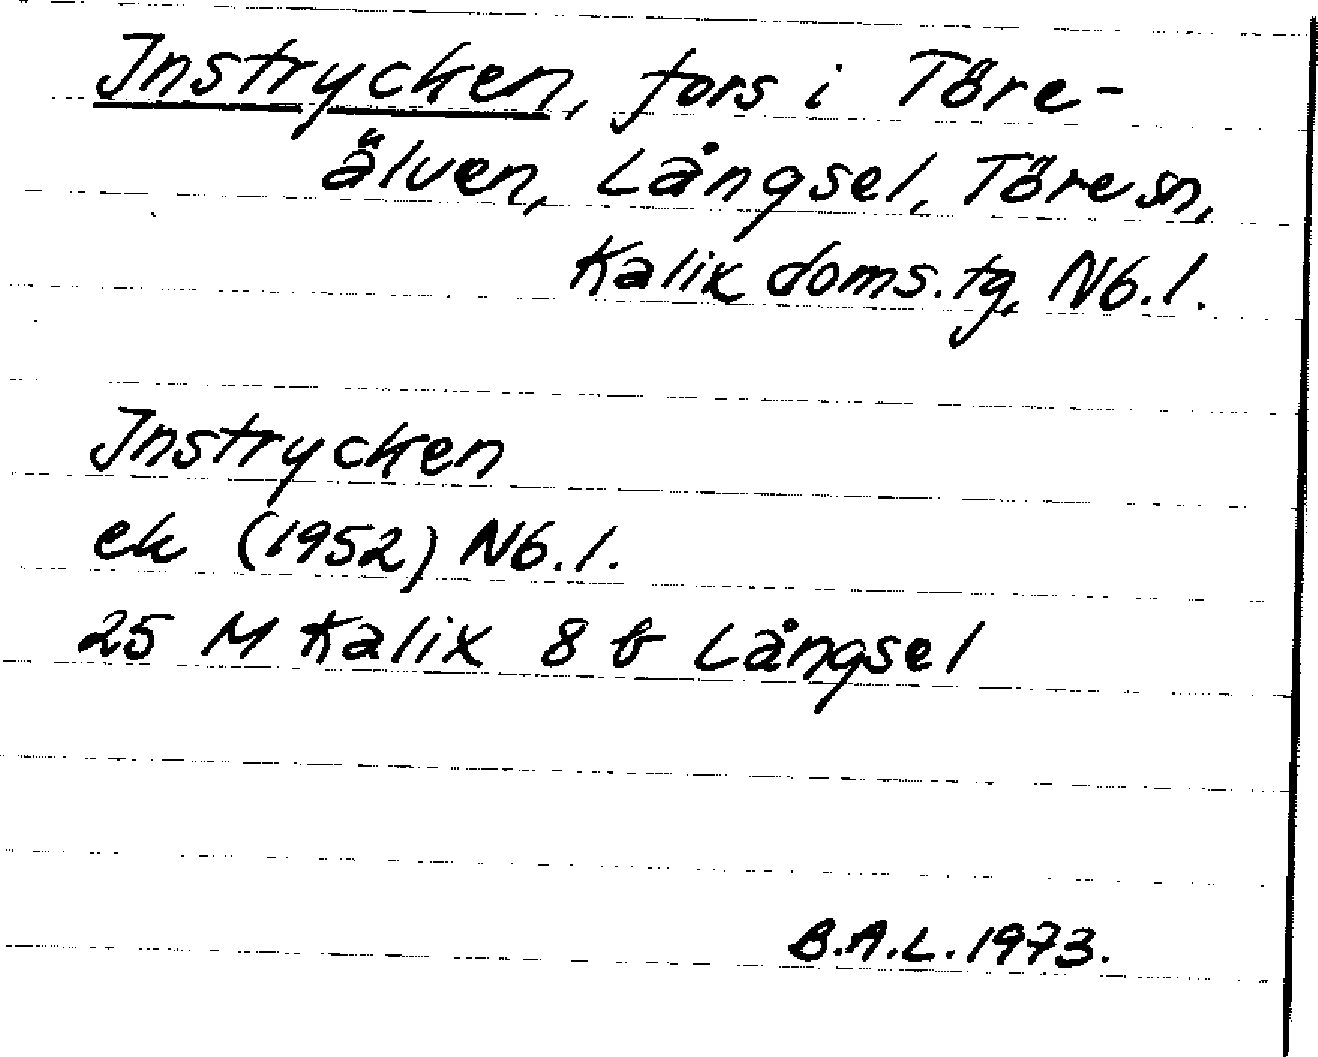 Instrycken, fors i Töre-
älven, Långsel, Töre sn,
Kalix doms.tg, Nb.l.
Instrycken
ek (1952) Nb.l.
25 M Kalix 8 b Långsel
B.A.L. 1973.